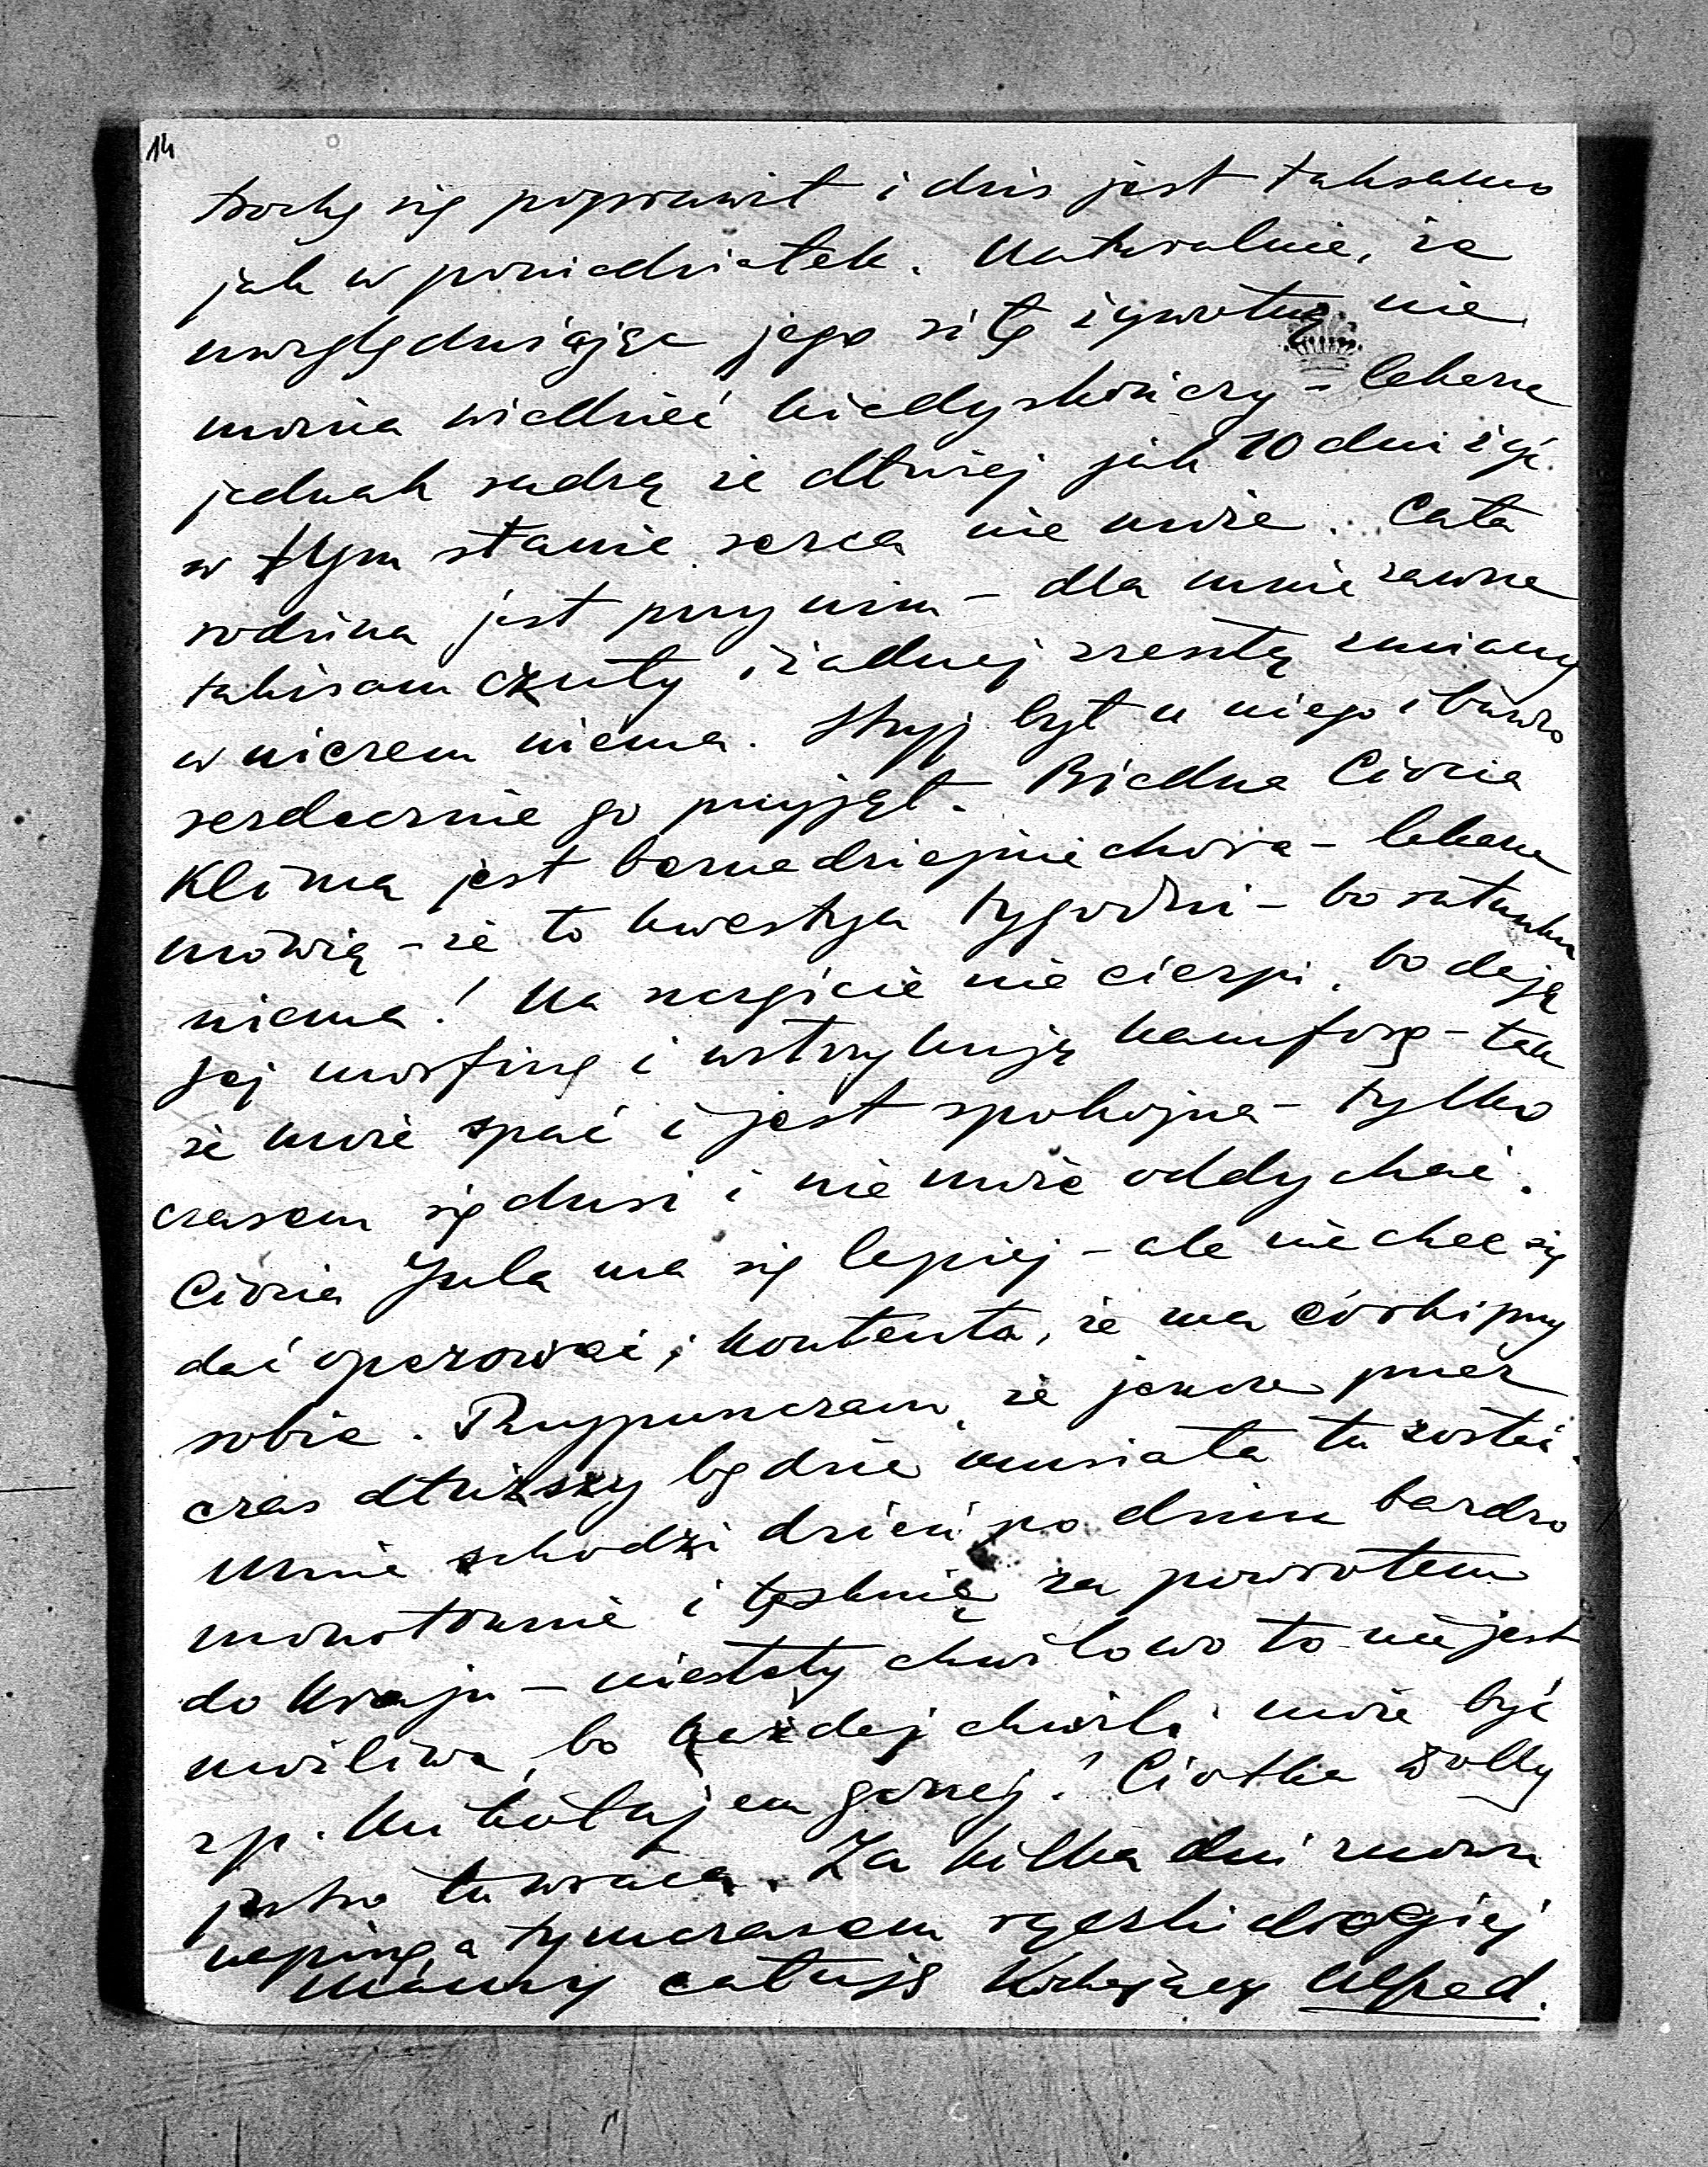 14
trochę się poprawił i dziś jest taksamo
jak w poniedziałek. Naturalnie, że
uwzględniając jego siłę żywotną nie
można wiedzieć kiedy skończy – lekarze
jednak sądzą że dłużej jak 10 dni żyć
w tym stanie serca nie może. Cała
rodzina jest przy nim – dla mnie zawsze
takisam czuły i żadnej zresztą zmiany
w niczem niema. Stryj był u niego i bardzo
serdecznie go przyjął. Biedna Ciocia
Klima jest beznadziejnie chora – lekarze
mówią – że to kwestya tygodni – bo ratunku
niema! Na szczęście nie cierpi, bo dają
jej morfinę i wstrzykują kamforę – tak
że może spać i jest spokojna – tylko
czasem się dusi i nie może oddychać.
Ciocia Jula ma się lepiej – ale nie chce się
dać operować; kontenta, że ma córki przy
sobie. Przypuszczam, że jeszcze przez
czas dłuższy będzie musiała tu zostać.
Mnie schodzi dzień po dniu bardzo
monotonnie i tęsknię za powrotem
do kraju – niestety chwilowo to nie jest
możliwe, bo każdej chwili może być
z p. Mikołajem gorzej! Ciotka Dolly
jutro tu wraca. Za kilka dni znowu
napiszę a tymczasem rączki drogiej
Mamy całuję Kochający Alfred.